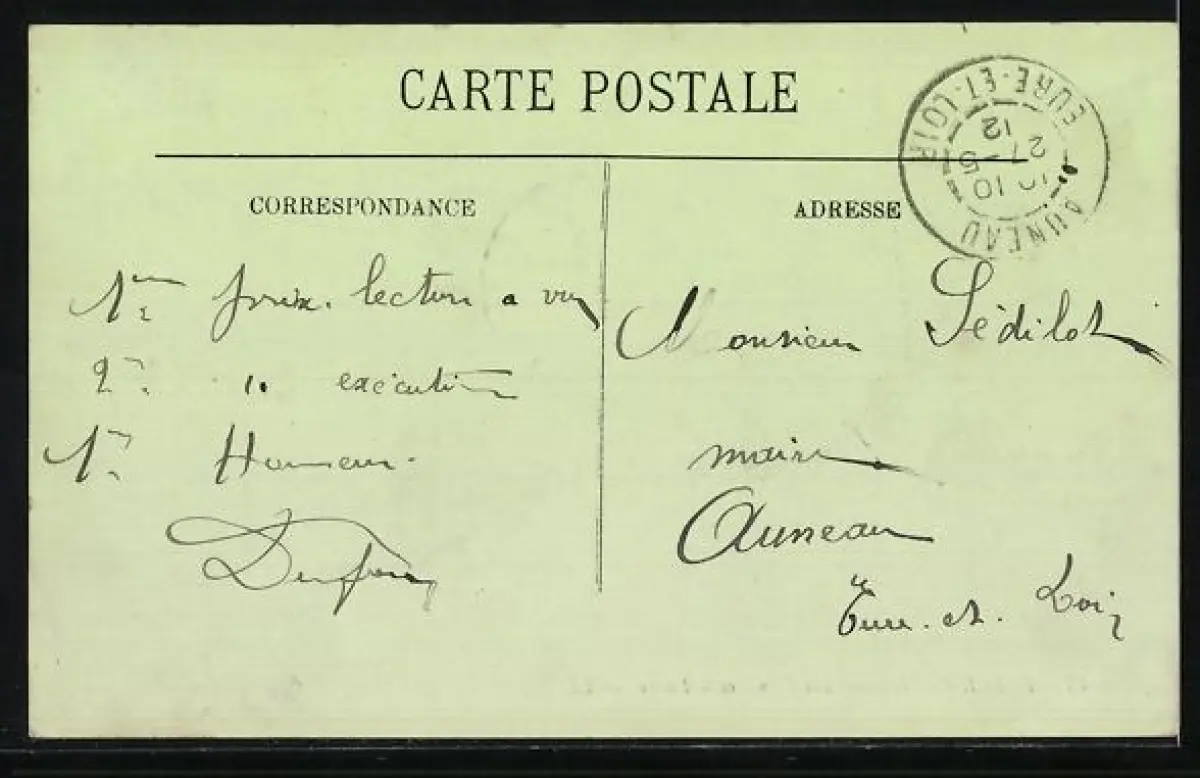 CARTE POSTALE
CORRESPONDANCE
ADRESSE
AUNEAU
EURE-ET-LOIR
10 10
27-5
12
1er prix. lecture a vue
2e " exécution
1er Honneur.
Monsieur Sédilot
maire
Auneau
Eure-et-Loir